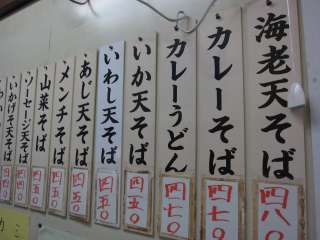 海老天そば
四八〇
カレーそば
四七〇
カレーうどん
四七〇
いか天そば
四五〇
いわし天そば
四五〇
あじ天そば
四五〇
メンチそば
四五〇
山菜そば
四五〇
ソーセージ天そば
いかげそ天そば